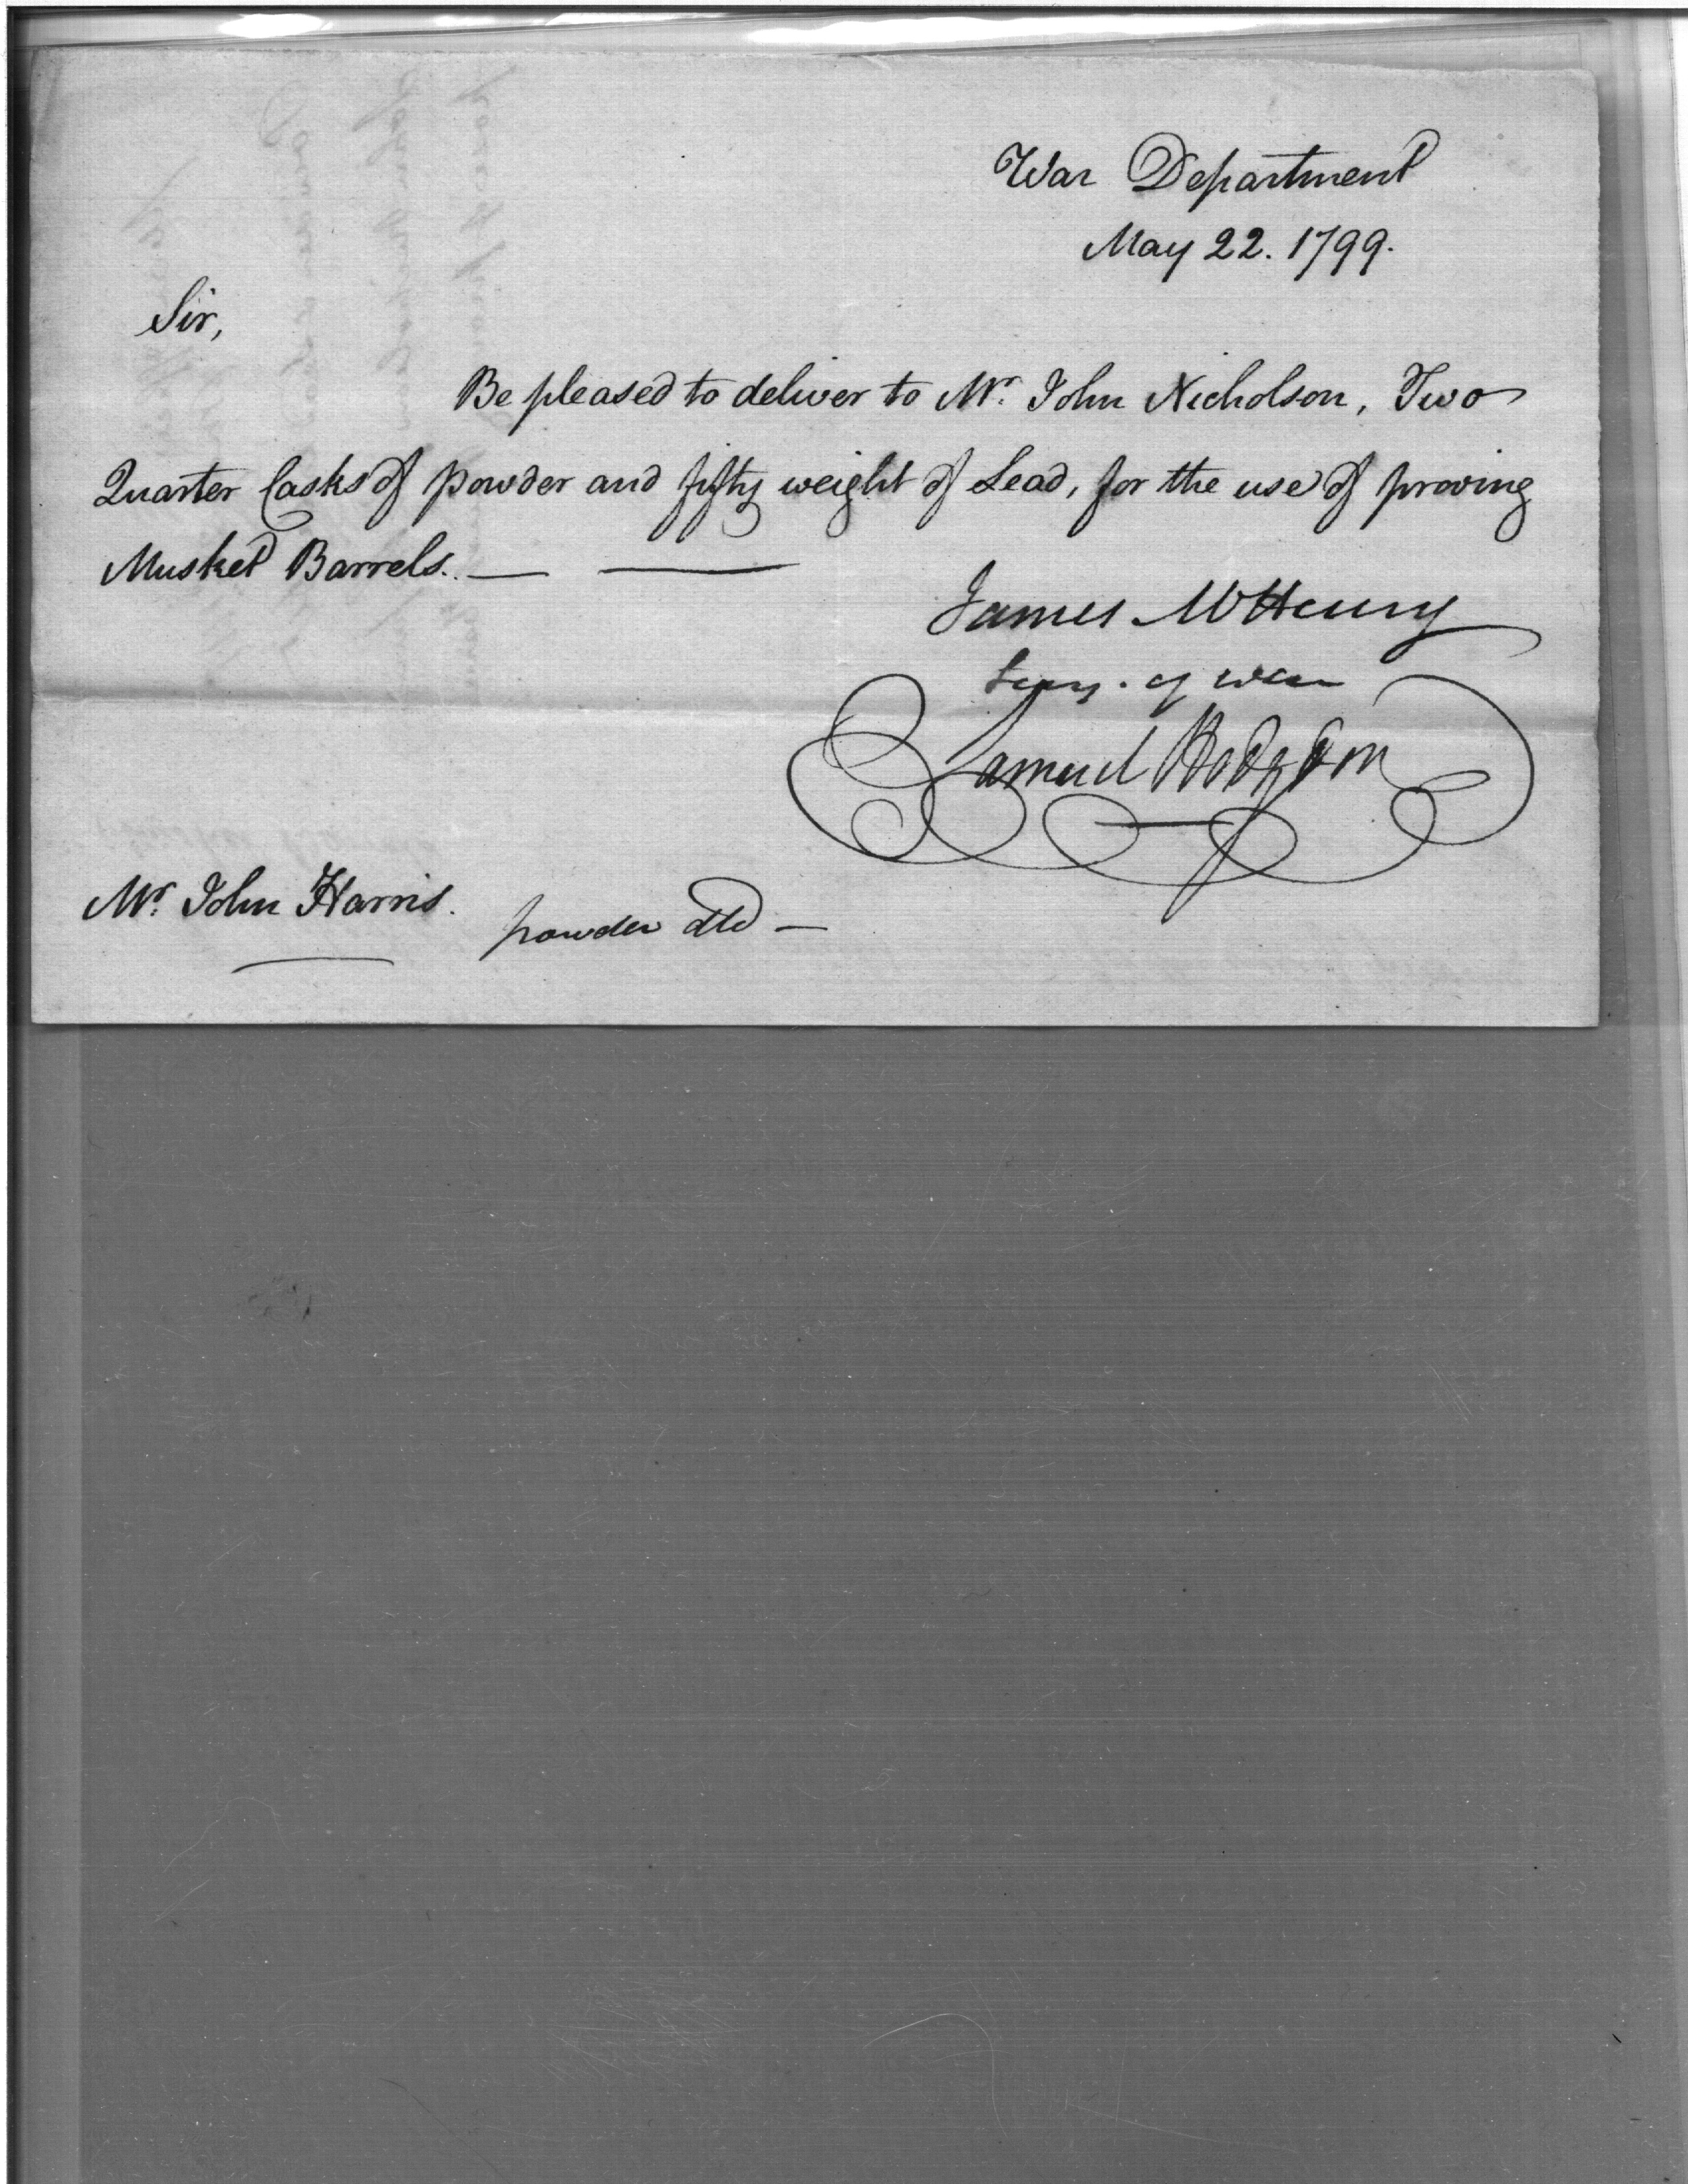 War Department
May 22. 1799.
Sir,
Be pleased to deliver to Mr. John Nicholson, Two
Quarter Casks of powder and fifty weight of Lead, for the use of proving
Musket Barrels. — —
James McHenry
Secy. of war
Samuel Hodgdon
Mr. John Harris.
powder dld —